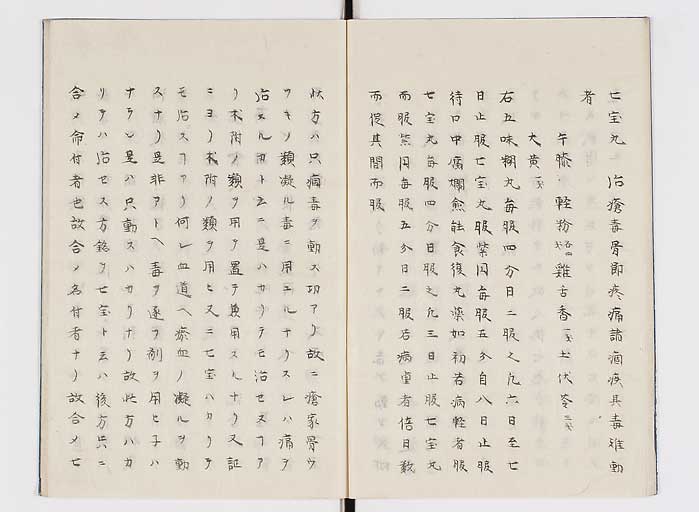 七宝丸　治瘡毒骨節疼痛諸痼疾其毒難動
者
牛膝　軽粉　雞舌香　土伏苓
大黄
右五味糊丸毎服四分日二服之凡六日至七
日止服七宝丸服紫円毎服五分自八日止服
待口中痛爛愈能食復丸薬如初若病軽者服
七宝丸毎服四分日服之凡三日止服七宝丸
而服紫円毎服五分日二服若病重者倍日数
而従其間而服
此方ハ只病毒ヲ動ス功アリ故ニ瘡家骨ウ
ヲキノ類凝ル毒ニ用ユルナリスレハ痛ヲ
治スルカト云ニ是ハカリテモ治セスフア
リ术附ノ類ヲ用ヲ置テ兼用スルナリ又証
ニヨリ术附ノ類ヲ用ヒ又ニ七宝ハカリテ
モ治スフアリ何レ血道ヘ瘀血ノ凝ルヲ動
スナリ是非アトヘ毒ヲ逐ヲ剤ヲ用ヒ子ハ
ナラン是ハ只動スハカリナリ故此方ハカ
リテハ治セス方銘ヲ七宝ト云ハ後方共ニ
合メ命付者也故合メ名付者ナリ故合メ七